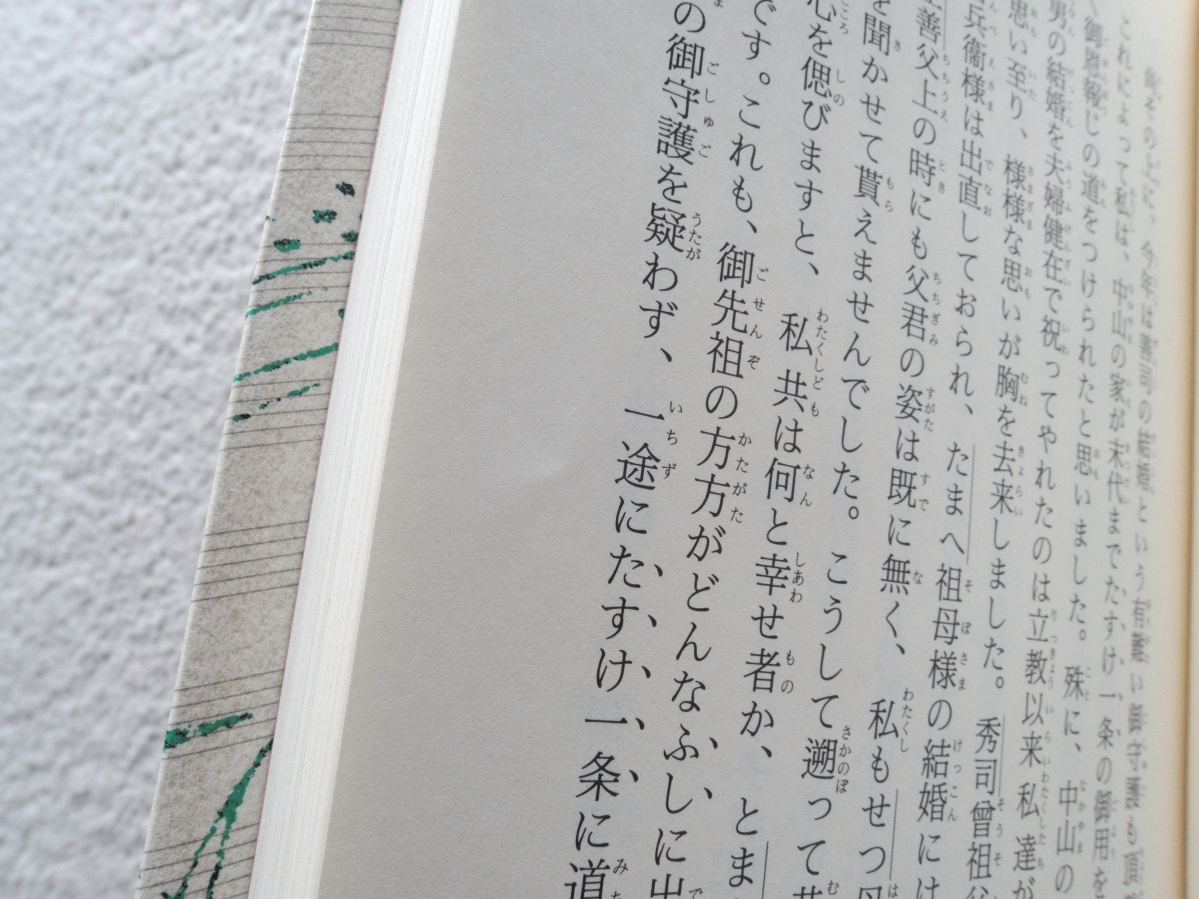 今年は善司の結婚という有難い御守護も頂
これによって私は、中山の家が末代までたすけ一条の御用を
御恩報じの道をつけられたと思いました。殊に、中山の
男の結婚を夫婦健在で祝ってやれたのは立教以来私達が
思い至り、様様な思いが胸を去来しました。秀司曾祖父
兵衞様は出直しておられ、たまへ祖母様の結婚には
善父上の時にも父君の姿は既に無く、私もせつ母
を聞かせて貰えませんでした。こうして遡って昔
心を偲びますと、私共は何と幸せ者か、とま
です。これも、御先祖の方方がどんなふしに出
の御守護を疑わず、一途にたすけ一条に道